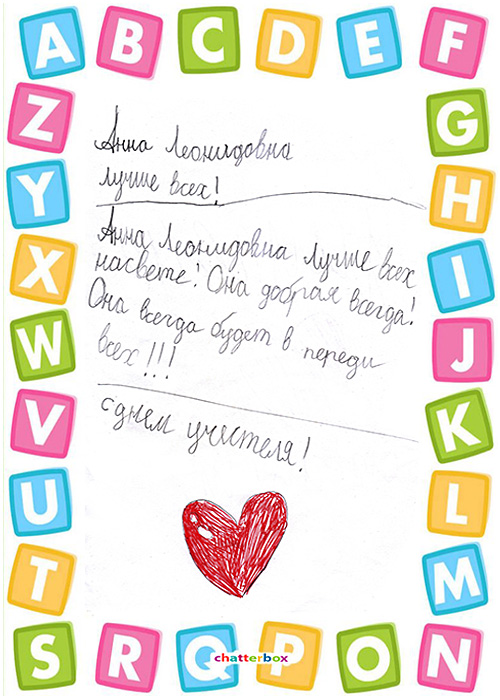 A B C D E F
Z G
Y H
X I
W J
V K
U L
T M
S R Q P O N
Анна Леонидовна
лучше всех!
Анна Леонидовна лучше всех
насвете! Она добрая всегда!
Она всегда будет в переди
всех!!!
с днем учетеля!
chatterbox